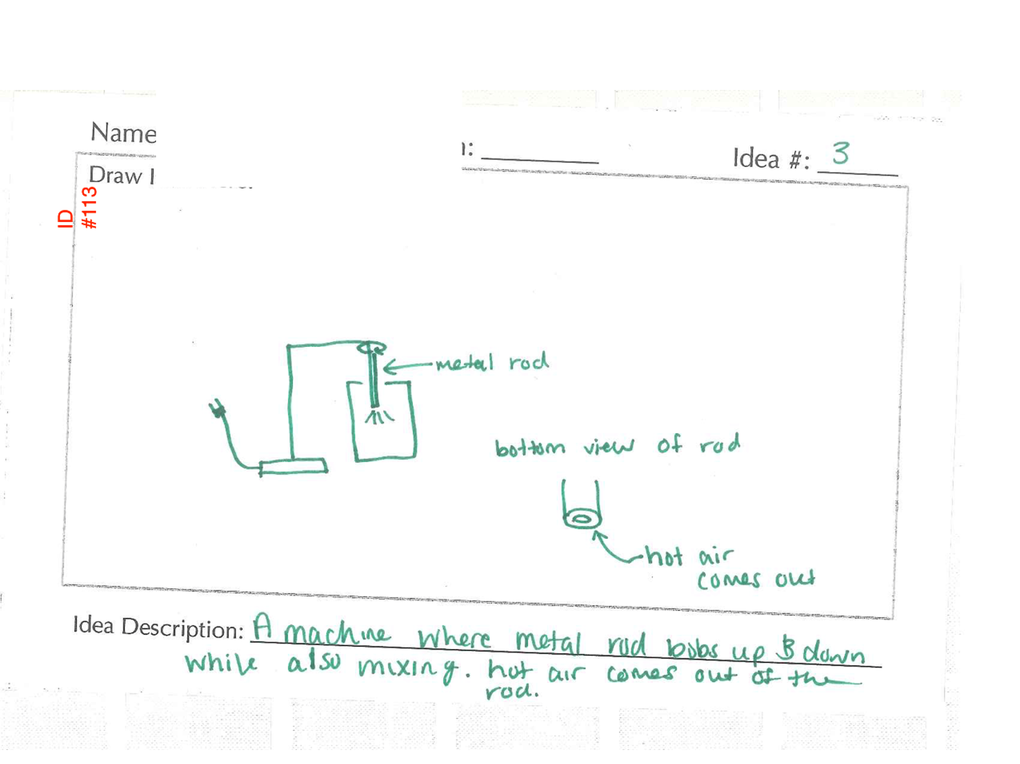 Name 1: Idea #: 3
Draw I
ID
#113
metal rod
bottom view of rod
hot air
comes out
Idea Description: A machine where metal rod bobs up & down
while also mixing. hot air comes out of the
rod.